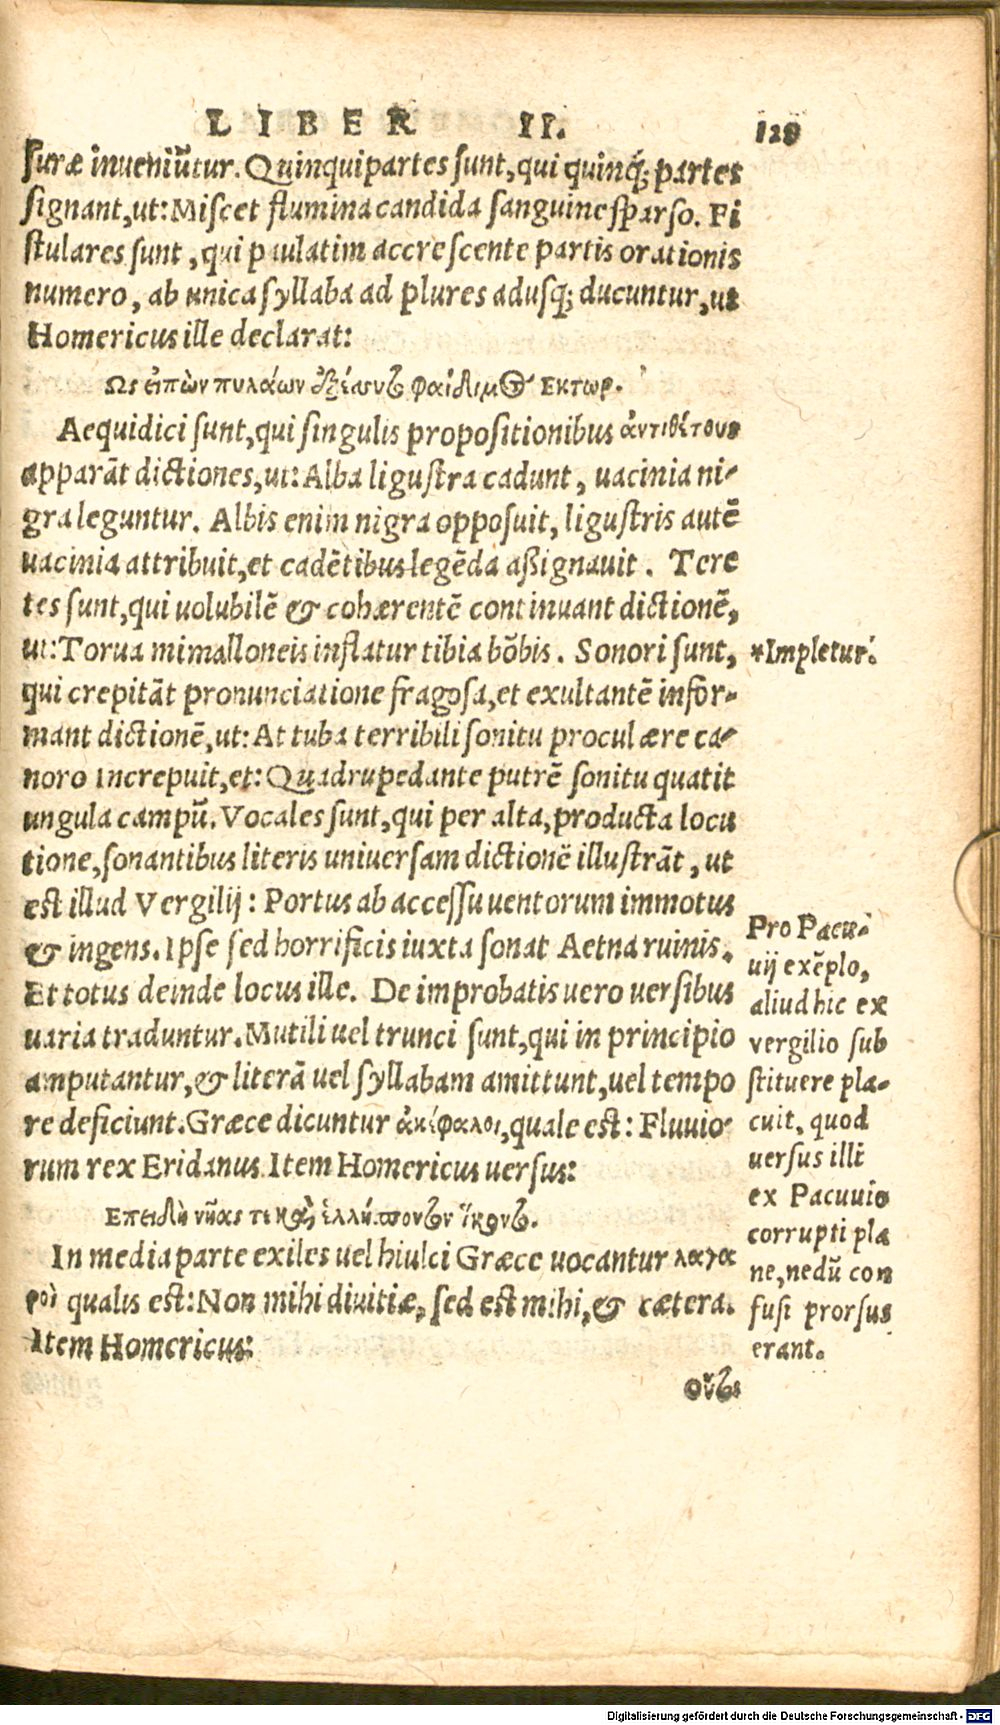 LIBER II. 128
suræ inueniūtur. Quinquipartes sunt, qui quinq; partes
signant, ut: Miscet flumina candida sanguine sparso. Fi
stulares sunt, qui paulatim accrescente partis orationis
numero, ab unica syllaba ad plures adusq; ducuntur, ut
Homericus ille declarat:
Ως εἰπὼν πυλάων ἐξέσσυτο φαίδιμος Εκτωρ.
Aequidici sunt, qui singulis propositionibus ἀντιθέτους
apparāt dictiones, ut: Alba ligustra cadunt, uacinia ni-
gra leguntur. Albis enim nigra opposuit, ligustris autē
uacinia attribuit, et cadētibus legēda aßignauit. Tere
tes sunt, qui uolubilē & cohærentē continuant dictionē,
ut: Torua mimalloneis inflatur tibia bōbis. Sonori sunt,
*Impletur.
qui crepitāt pronunciatione fragosa, et exultantē infor-
mant dictionē, ut: At tuba terribili sonitu procul ære ca-
noro Increpuit, et: Quadrupedante putrē sonitu quatit
ungula campū. Vocales sunt, qui per alta, producta locu
tione, sonantibus literis uniuersam dictionē illustrāt, ut
est illud Vergilij: Portus ab accessu uentorum immotus
& ingens. Ipse sed horrificis iuxta sonat Aetna ruinis.
Et totus deinde locus ille. De improbatis uero uersibus
uaria traduntur. Mutili uel trunci sunt, qui in principio
amputantur, & literā uel syllabam amittunt, uel tempo
re deficiunt. Græce dicuntur ἀκέφαλοι, quale est: Fluuio-
rum rex Eridanus. Item Homericus uersus:
Επειδὴ νῆας τε καὶ ἑλλήσποντον ἵκοντο.
In media parte exiles uel hiulci Græce uocantur λαγα
ροὶ qualis est: Non mihi diuitiæ, sed est mihi, & cætera.
Item Homericus:
Pro Pacu-
uij exēplo,
aliud hic ex
vergilio sub
stituere pla-
cuit, quod
uersus illi
ex Pacuuio
corrupti pla
ne, nedū con
fusi prorsus
erant.
Digitalisierung gefördert durch die Deutsche Forschungsgemeinschaft - DFG